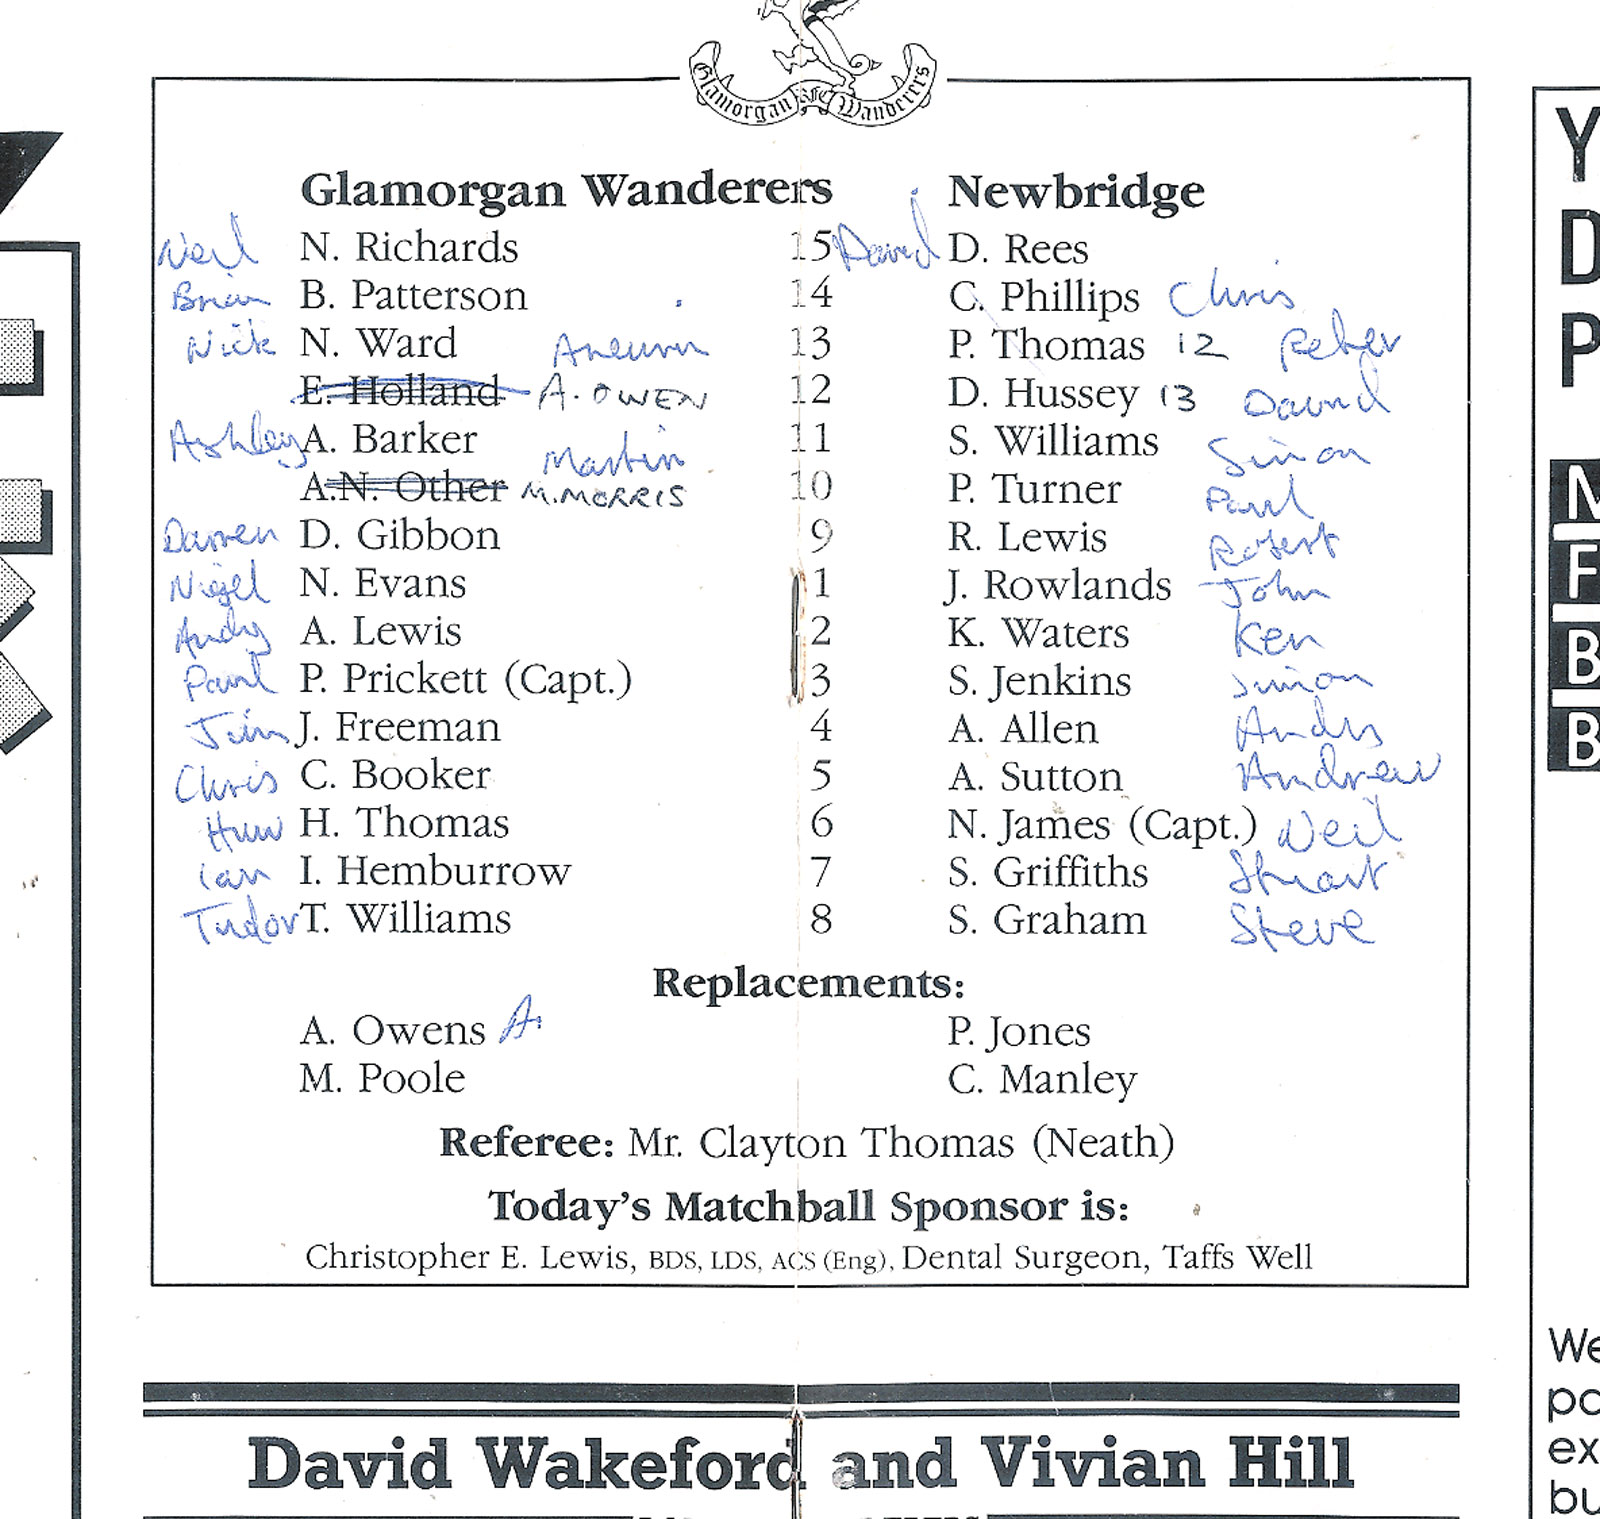 Glamorgan RFC Wanderers
Glamorgan Wanderers Newbridge
Neil N. Richards 15 David D. Rees
Brian B. Patterson 14 C. Phillips Chris
Nick N. Ward Aneurin 13 P. Thomas 12 Peter
E. Holland A. OWEN 12 D. Hussey 13 David
Ashley A. Barker 11 S. Williams Simon
A.N. Other Martin M. MORRIS 10 P. Turner Paul
Darren D. Gibbon 9 R. Lewis Robert
Nigel N. Evans 1 J. Rowlands John
Andy A. Lewis 2 K. Waters Ken
Paul P. Prickett (Capt.) 3 S. Jenkins Simon
Jim J. Freeman 4 A. Allen Andy
Chris C. Booker 5 A. Sutton Andrew
Huw H. Thomas 6 N. James (Capt.) Neil
Ian I. Hemburrow 7 S. Griffiths Stuart
Tudor T. Williams 8 S. Graham Steve
Replacements:
A. Owens A. P. Jones
M. Poole C. Manley
Referee: Mr. Clayton Thomas (Neath)
Today's Matchball Sponsor is:
Christopher E. Lewis, BDS, LDS, ACS (Eng), Dental Surgeon, Taffs Well
David Wakeford and Vivian Hill
Y
D
P
M
F
B
B
We
po
ex
bu